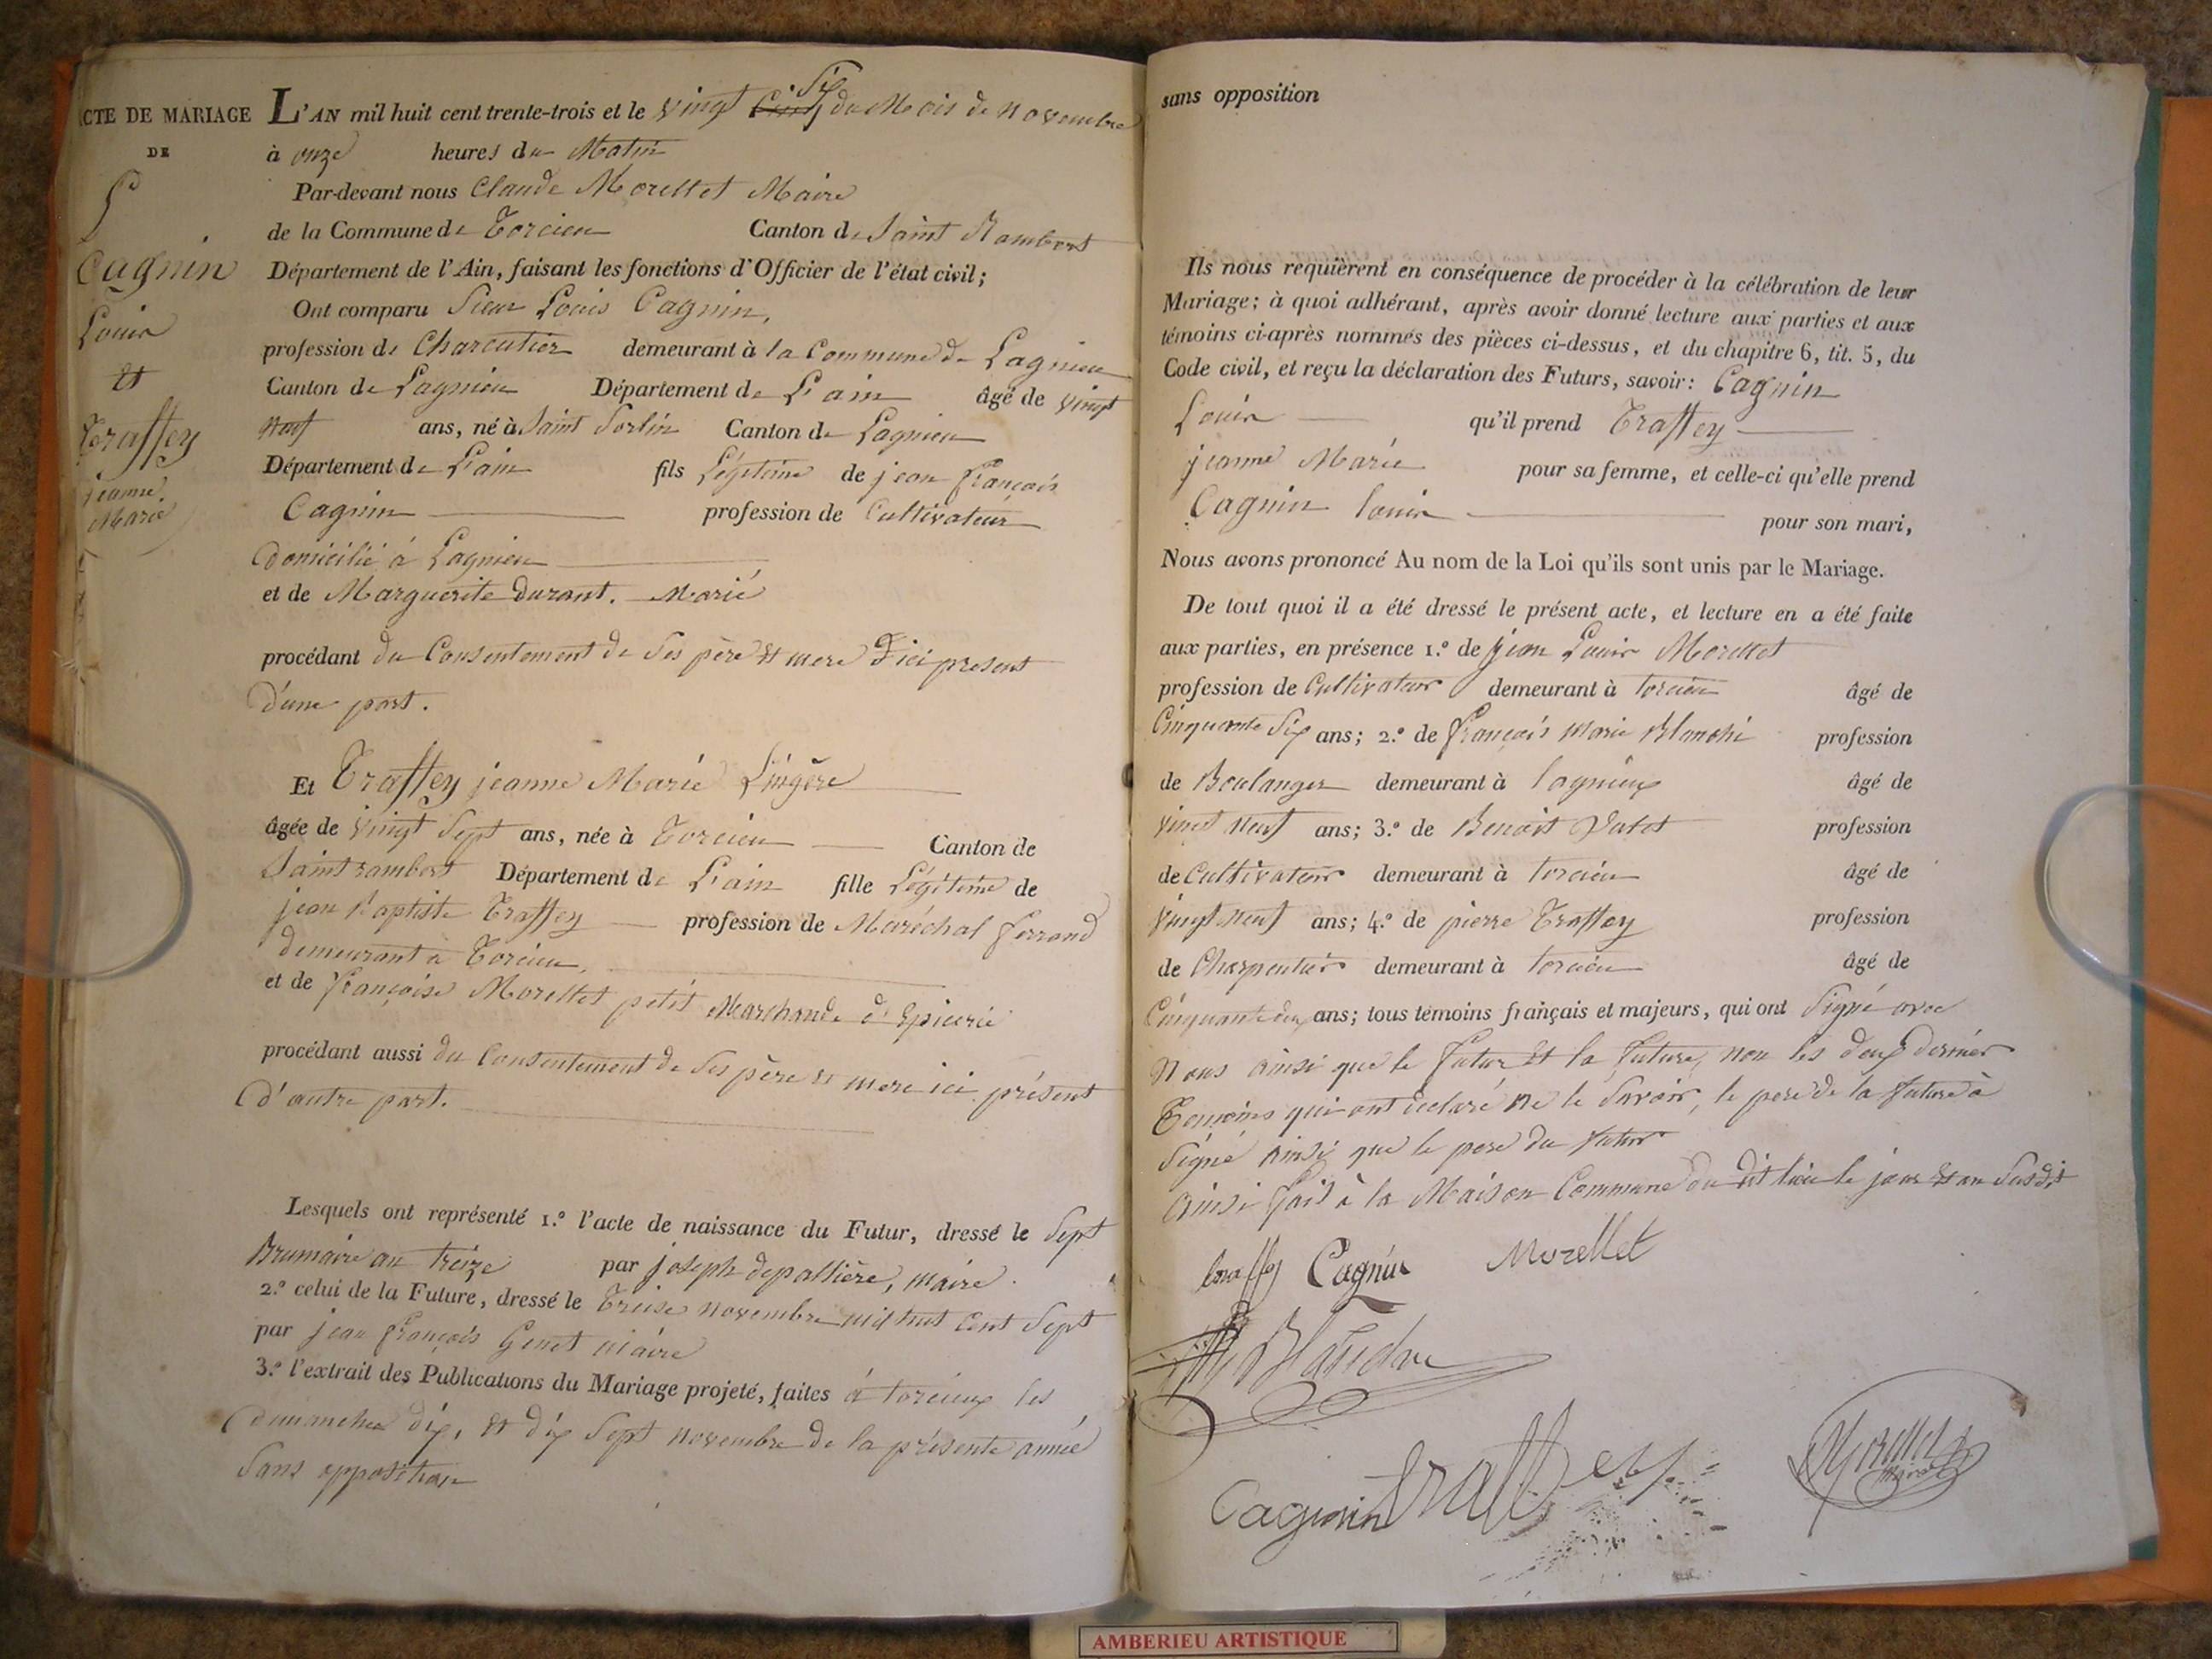 ACTE DE MARIAGE
DE
Cagnin
Louis
et
Traffey
jeanne
Marie
L'AN mil huit cent trente-trois et le vingt Cinq Six du Mois de novembre
à onze heures du Matin
Par-devant nous Claude Morellet Maire
de la Commune de Torcieu Canton de Saint Rambert
Département de l'Ain, faisant les fonctions d'Officier de l'état civil;
Ont comparu Sieur Louis Cagnin,
profession de Charcutier demeurant à la Commune de Lagnieu
Canton de Lagnieu Département de L'ain âgé de vingt
neuf ans, né à Saint Sorlin Canton de Lagnieu
Département de L'ain fils Légitime de jean François
Cagnin profession de Cultivateur
domicilié à Lagnieu
et de Marguerite durant. Marié
procédant du Consentement de Ses père et mere ici present
D'une part.
Et Traffey jeanne Marie Lingère
âgée de vingt Sept ans, née à Torcieu Canton de
Saint rambert Département de L'ain fille Légitime de
jean Baptiste Traffey profession de Maréchal ferrand
demeurant à Torcieu,
et de Françoise Morellet petit Marchande d'Epicerie
procédant aussi du Consentement de Ses père et mere ici présent
d'autre part.
Lesquels ont représenté 1.º l'acte de naissance du Futur, dressé le Sept
Brumaire an treize par joseph depallière, maire.
2.º celui de la Future, dressé le Treise novembre mil huit Cent Sept
par jean françois Genet maire
3.º l'extrait des Publications du Mariage projeté, faites à torcieux les
dimanches dix, et dix Sept novembre de la présente année
Sans opposition
sans opposition
Ils nous requièrent en conséquence de procéder à la célébration de leur
Mariage; à quoi adhérant, après avoir donné lecture aux parties et aux
témoins ci-après nommés des pièces ci-dessus, et du chapitre 6, tit. 5, du
Code civil, et reçu la déclaration des Futurs, savoir: Cagnin
Louis qu'il prend Traffey
jeanne Marie pour sa femme, et celle-ci qu'elle prend
Cagnin louis pour son mari,
Nous avons prononcé Au nom de la Loi qu'ils sont unis par le Mariage.
De tout quoi il a été dressé le présent acte, et lecture en a été faite
aux parties, en présence 1.º de jean Louis Morellet
profession de Cultivateur demeurant à torcieu âgé de
Cinquante Six ans; 2.º de françois Marie Blanchi profession
de Boulanger demeurant à lagnieux âgé de
vingt neuf ans; 3.º de Benoit profession
de Cultivateur demeurant à torcieu âgé de
vingt neuf ans; 4.º de pierre Traffey profession
de Charpentier demeurant à torcieu âgé de
Cinquante deux ans; tous témoins français et majeurs, qui ont Signé avec
Nous ainsi que le futur et la future, non les deux dernier
Temoins qui ont declaré ne le Savoir, le pere de la future à
Signé ainsi que le pere du futur
Ainsi fait à la Maison Commune du dit lieu le jour et an Susdit
traffey Cagnin Morellet
Blanche
Cagnin traffey Morellet
AMBERIEU ARTISTIQUE